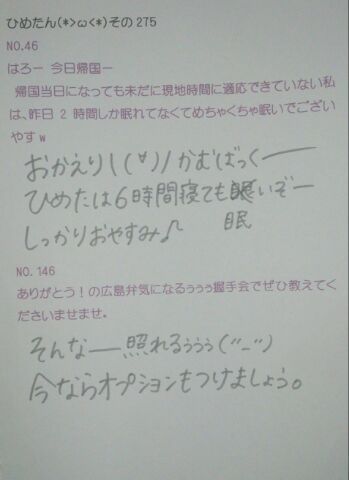 ひめたん(*>ω<*)その275
NO.46
はろー 今日帰国ー
帰国当日になっても未だに現地時間に適応できていない私
は、昨日 2 時間しか眠れてなくてめちゃくちゃ眠いでござい
やす w
おかえり\(∀)/かむばっくー
ひめたは6時間寝ても眠いぞー
しっかりおやすみ♪ 眠
NO.146
ありがとう！の広島弁気になるぅぅぅ握手会でぜひ教えてく
ださいませませ。
そんなー照れるぅぅぅ(〃_〃)
今ならオプションもつけましょう。